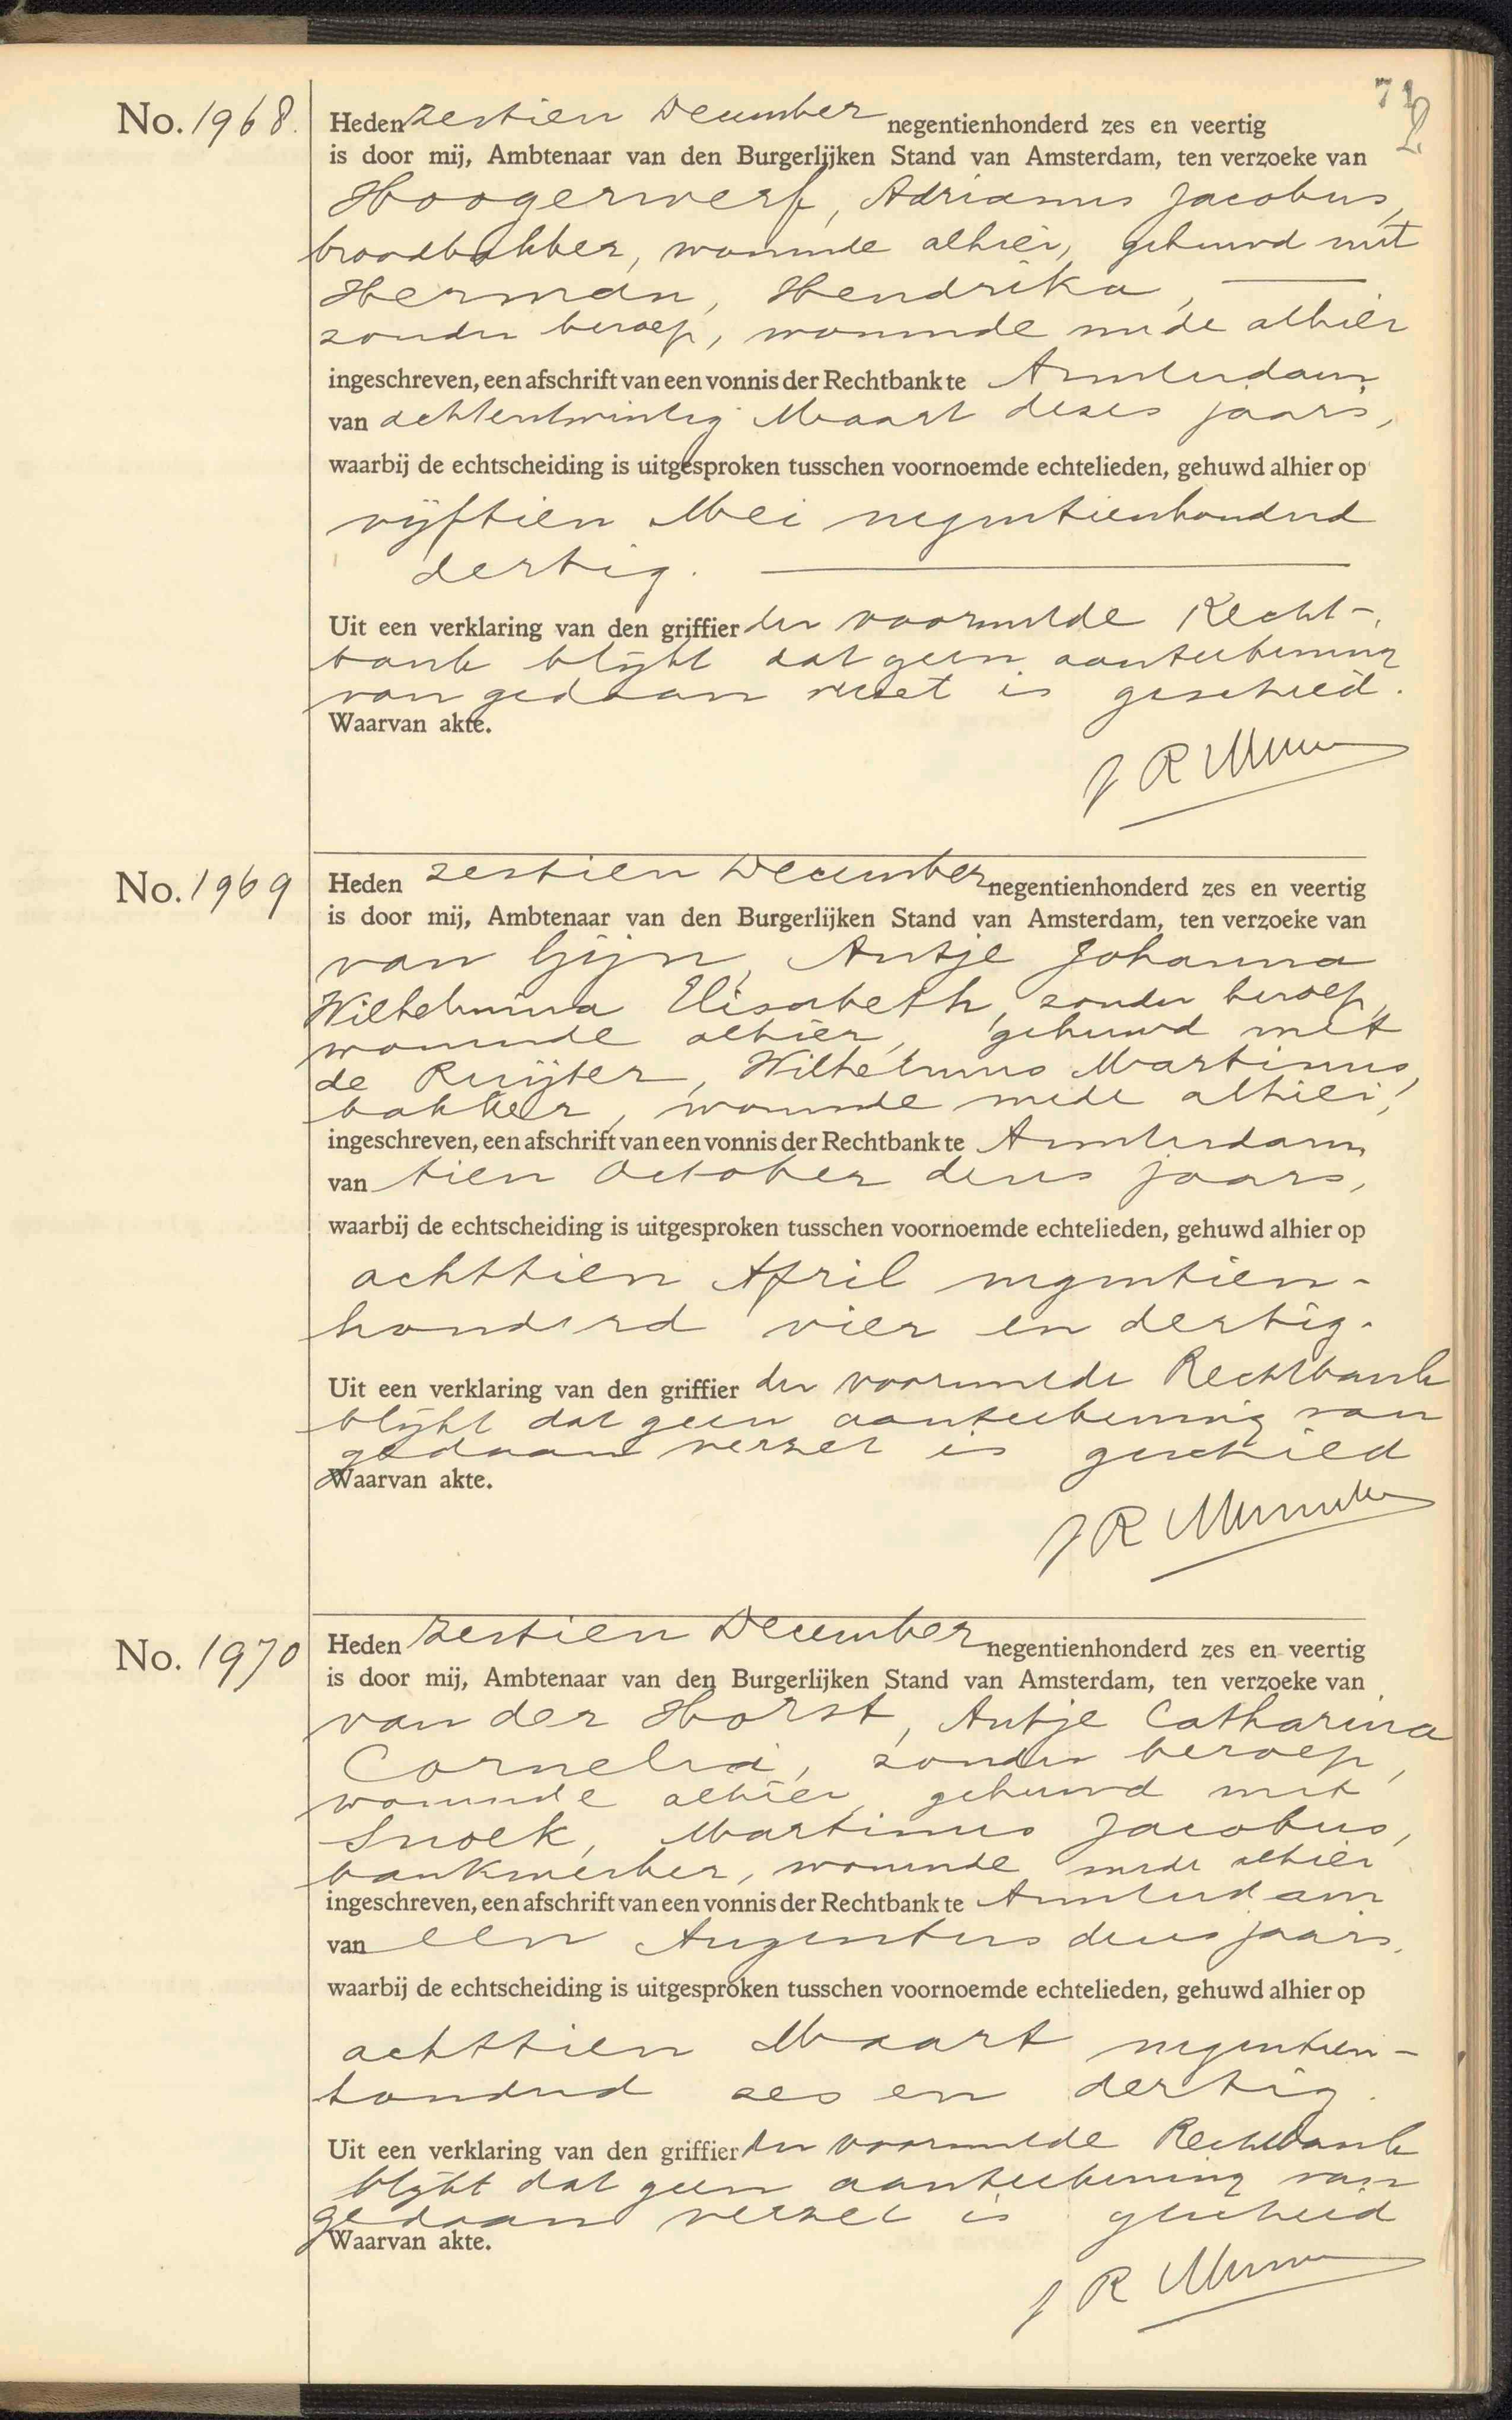 No. 1968.
Heden zestien December negentienhonderd zes en veertig
is door mij, Ambtenaar van den Burgerlijken Stand van Amsterdam, ten verzoeke van
Hoogerwerf, Adrianus Jacobus,
broodbakker, wonende alhier, gehuwd met
Herman, Hendrika,
zonder beroep, wonende mede alhier
ingeschreven, een afschrift van een vonnis der Rechtbank te Amsterdam
van achtentwintig Maart dezes jaars,
waarbij de echtscheiding is uitgesproken tusschen voornoemde echtelieden, gehuwd alhier op
vijftien Mei negentienhonderd
dertig.
Uit een verklaring van den griffier der voormelde Recht-
bank blijkt dat geen aanteekening
van gedaan verzet is geschied.
Waarvan akte.
No. 1969
Heden zestien December negentienhonderd zes en veertig
is door mij, Ambtenaar van den Burgerlijken Stand van Amsterdam, ten verzoeke van
van Gijn, Antje Johanna
Wilhelmina Elisabeth, zonder beroep,
wonende alhier, gehuwd met
de Ruijter, Wilhelmus Martinus,
bakker, wonende mede alhier,
ingeschreven, een afschrift van een vonnis der Rechtbank te Amsterdam
van tien October dezes jaars,
waarbij de echtscheiding is uitgesproken tusschen voornoemde echtelieden, gehuwd alhier op
achttien April negentien-
honderd vier en dertig.
Uit een verklaring van den griffier der voormelde Rechtbank
blijkt dat geen aanteekening van
gedaan verzet is geschied
Waarvan akte.
No. 1970
Heden zestien December negentienhonderd zes en veertig
is door mij, Ambtenaar van den Burgerlijken Stand van Amsterdam, ten verzoeke van
van der Horst, Antje Catharina
Cornelia, zonder beroep,
wonende alhier, gehuwd met
Snoek, Martinus Jacobus,
bankwerker, wonende mede alhier
ingeschreven, een afschrift van een vonnis der Rechtbank te Amsterdam
van een Augustus dezes jaars,
waarbij de echtscheiding is uitgesproken tusschen voornoemde echtelieden, gehuwd alhier op
achttien Maart negentien-
honderd zes en dertig.
Uit een verklaring van den griffier der voormelde Rechtbank
blijkt dat geen aanteekening van
gedaan verzet is geschied
Waarvan akte.